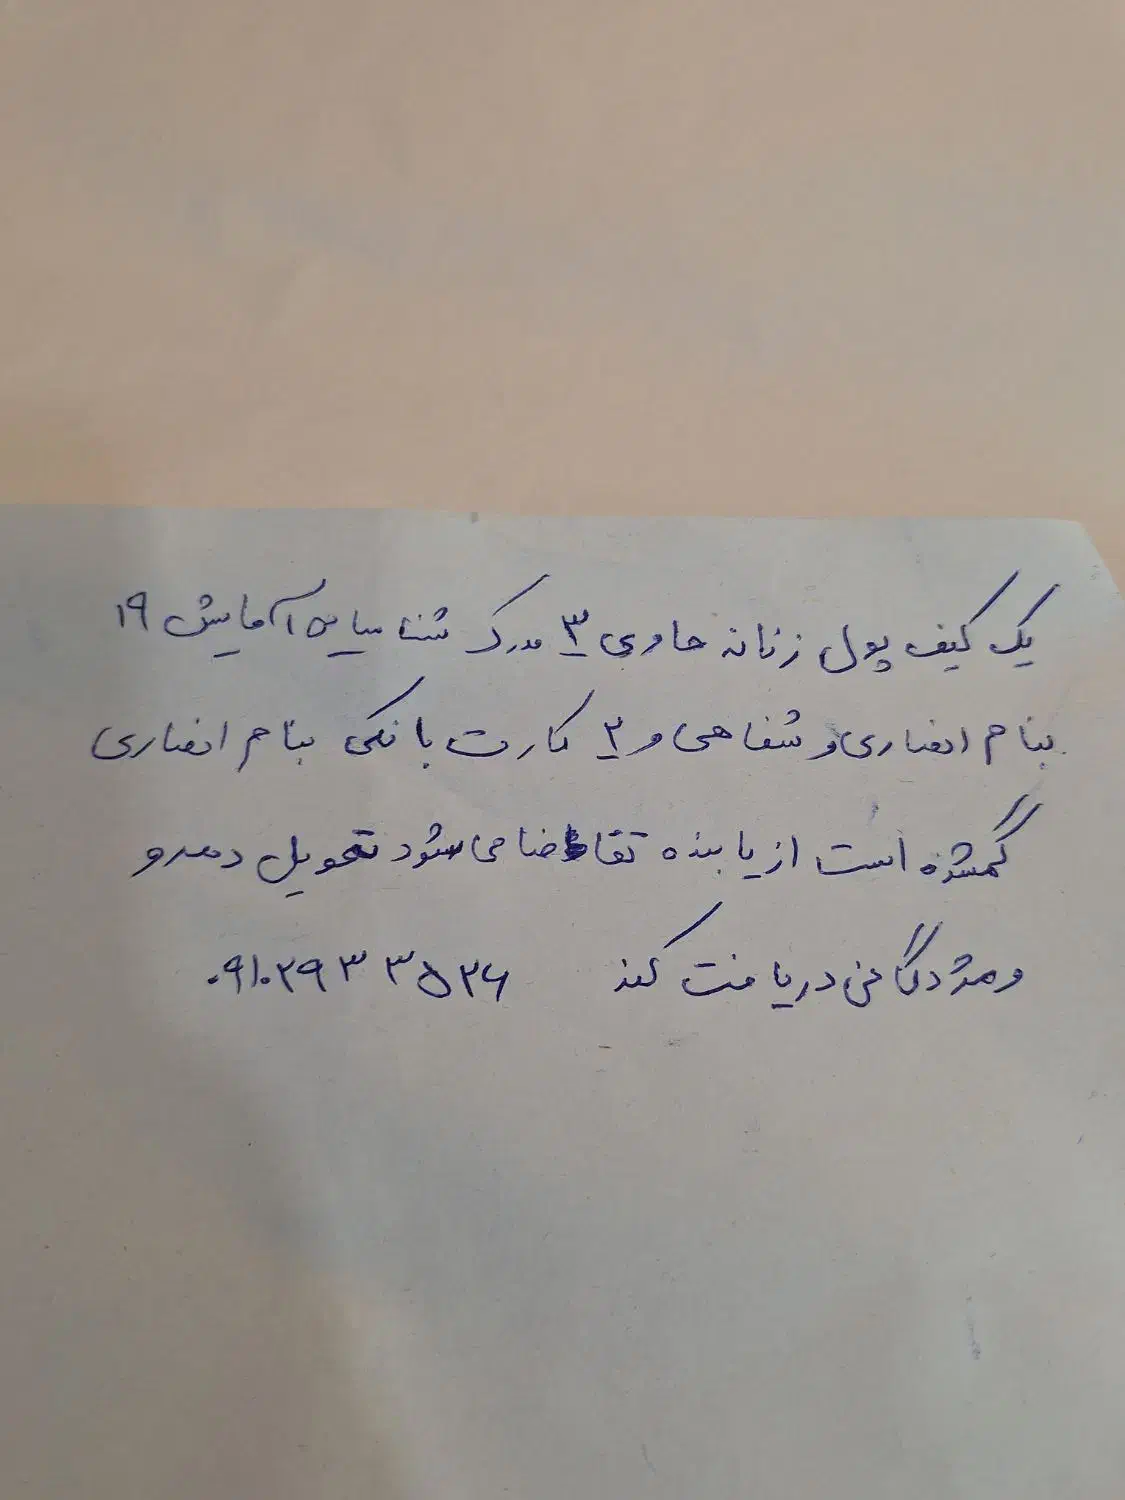 یک کیف پول زنانه حاوی ۳ مدرک شناسایی آمایش ۱۹
بنام انصاری و شفاهی و ۲ کارت بانکی بنام انصاری
گمشده است از یابنده تقاضا می شود تحویل دهد و
و مژدگانی دریافت کند ۰۹۱۰۲۹۳۳۵۲۶